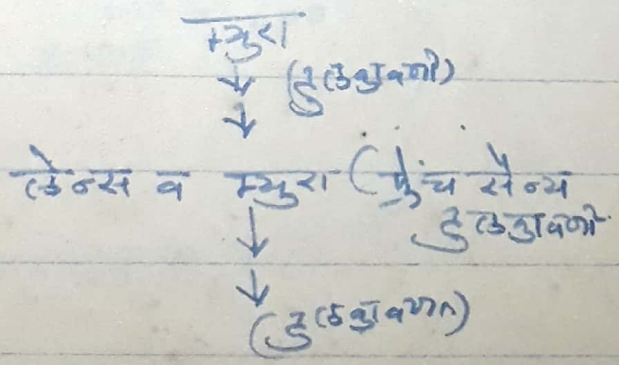 म्युरा
↓ (हुलकावणी)
↓
लेन्स व म्युरा (फ्रेंच सैन्य
हुलकावणी
↓
↓
(हुलकावणी)